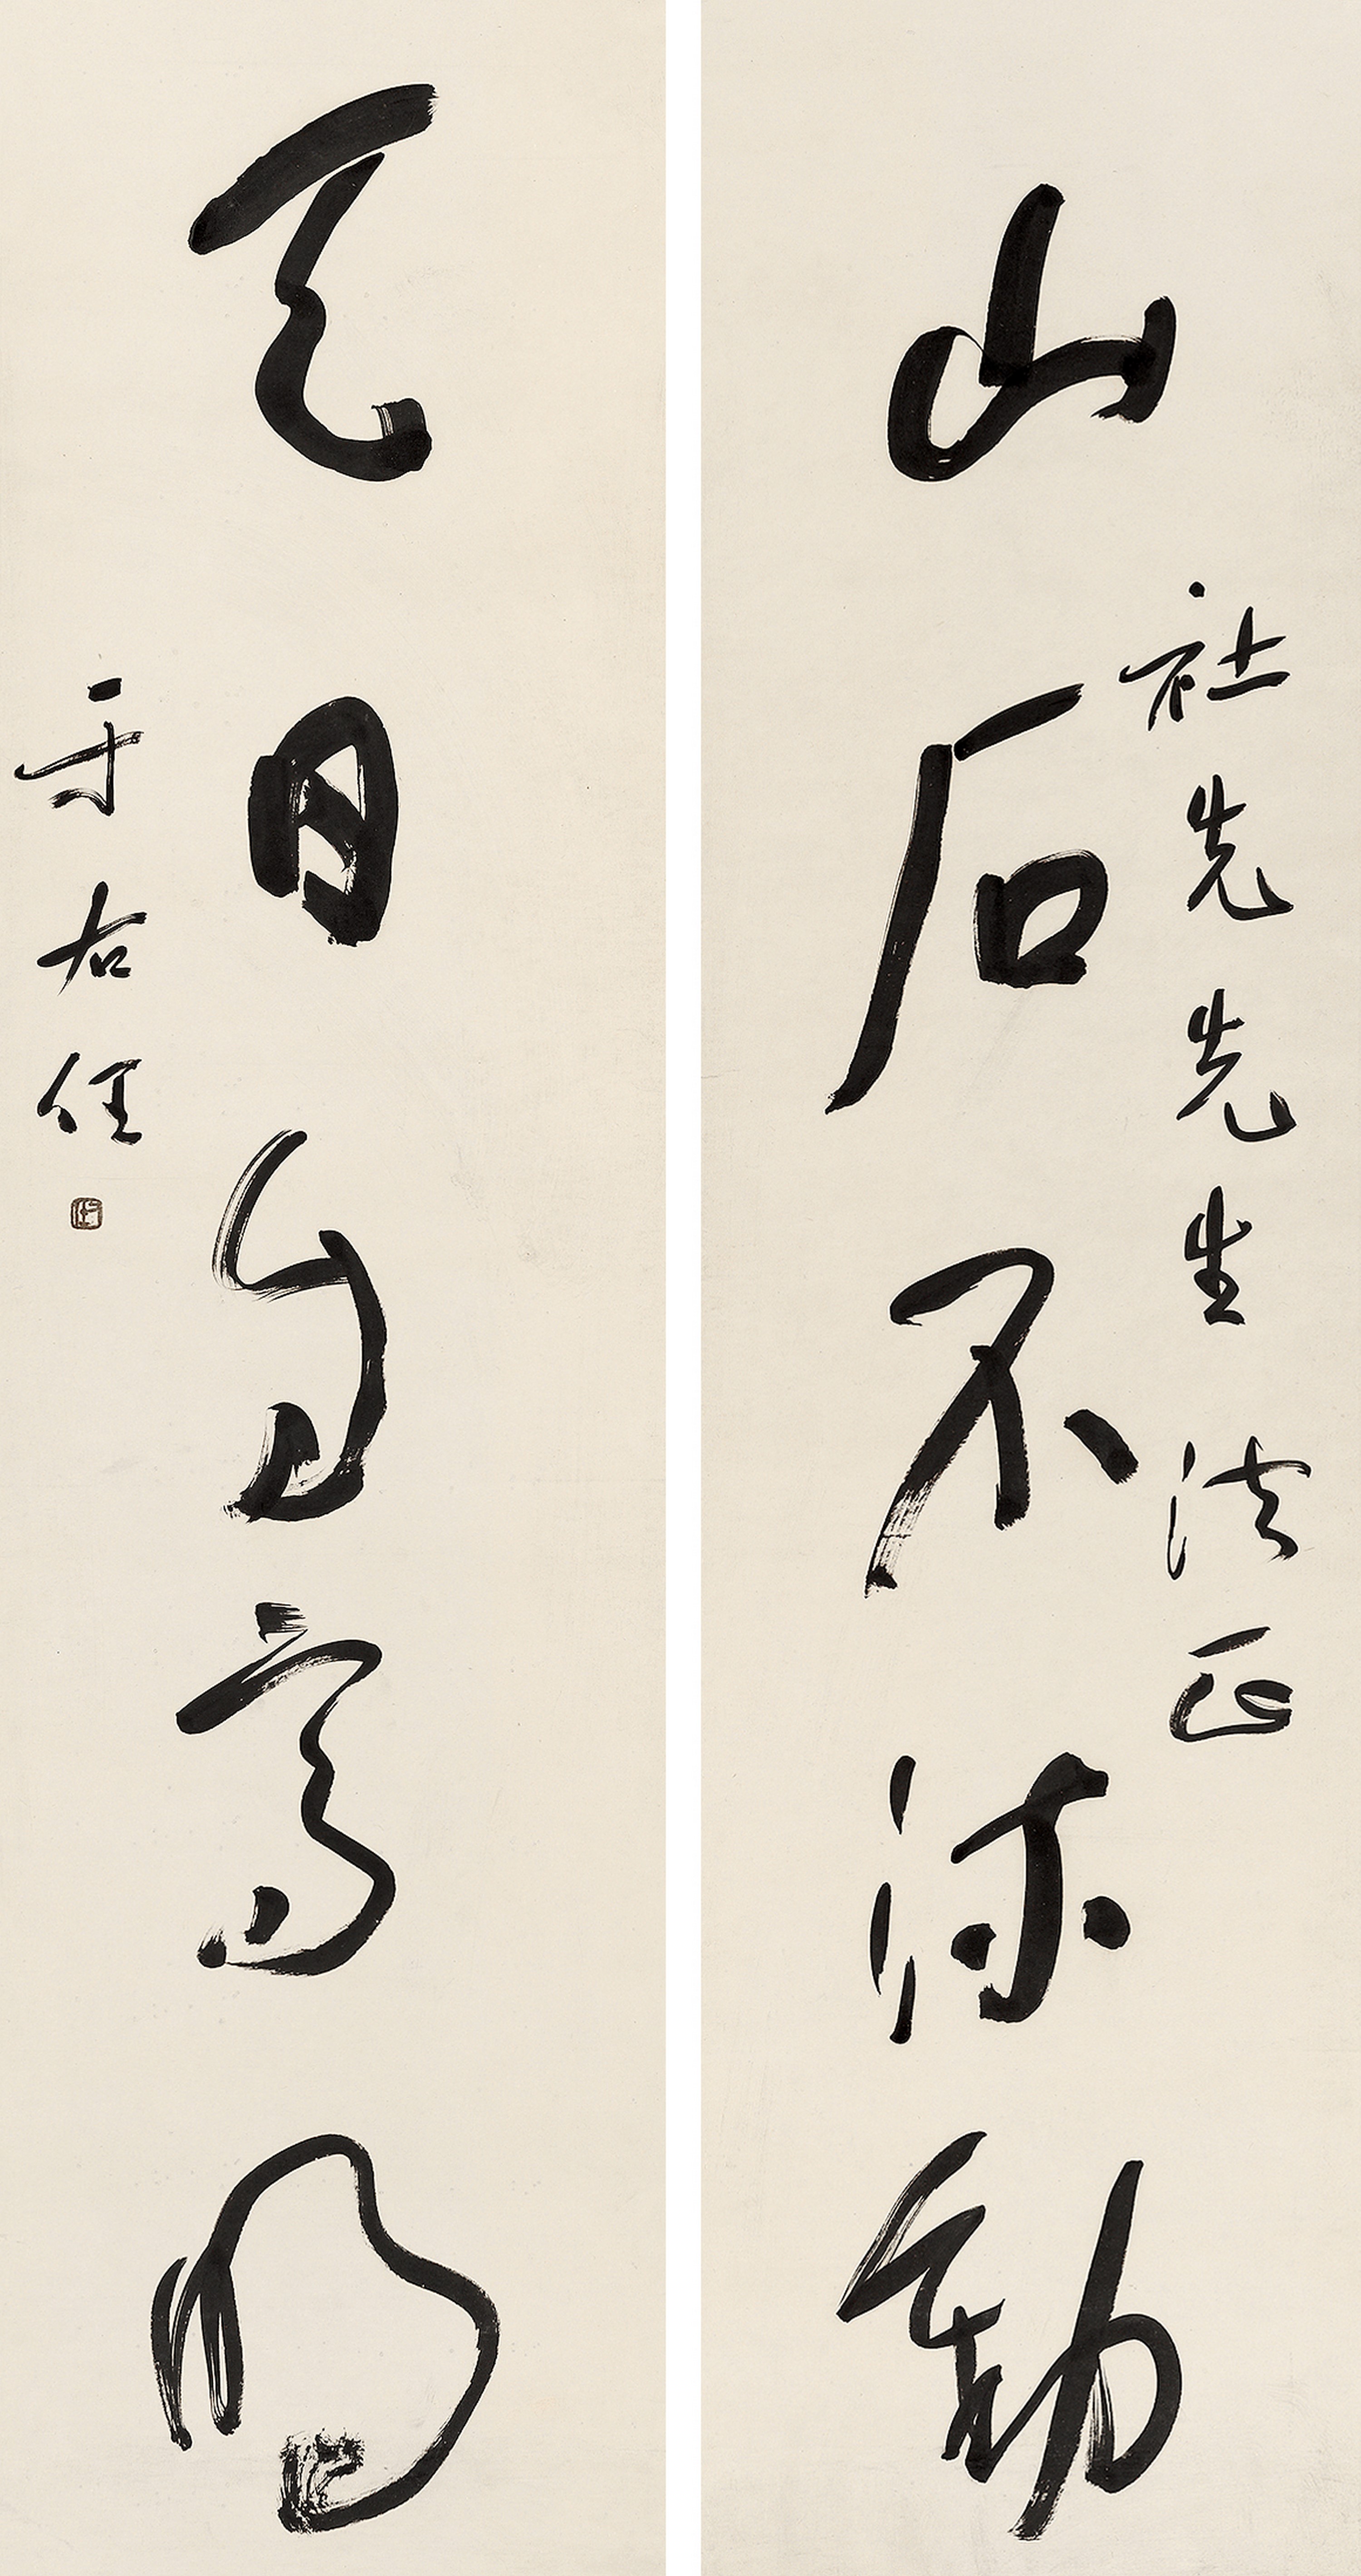 山石不深動
社先先生法正
天日自高明
于右任